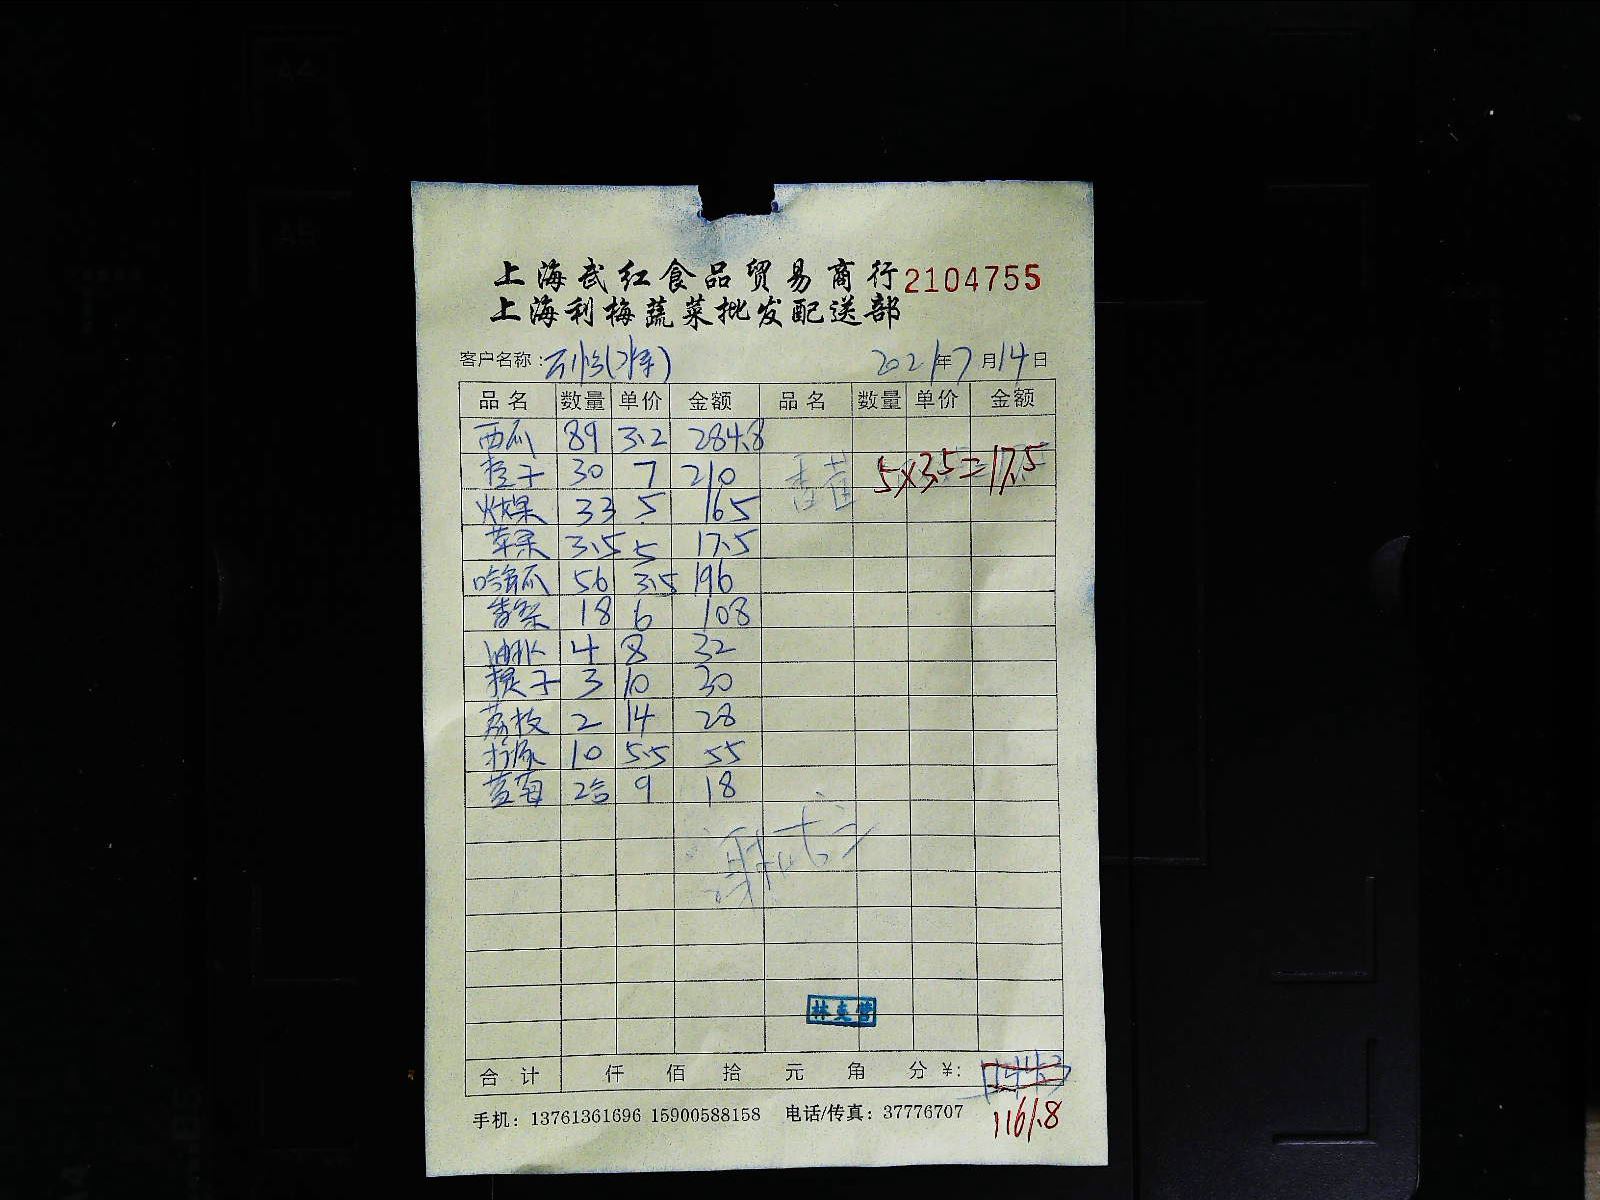 上海武红食品贸易商行 2104755
上海利梅蔬菜批发配送部
客户名称： 2021年7月14日
品名 数量 单价 金额 品名 数量 单价 金额
西瓜 89 3.2 284.8
橙子 30 7 210 香蕉 5×3.5=17.5
火龙果 33 5 165
苹果 3.5 5 17.5
哈密瓜 56 3.5 196
香梨 18 6 108
油桃 4 8 32
提子 3 10 30
荔枝 2 14 28
10 5.5 55
蓝莓 2合 9 18
林克营
合计 仟 佰 拾 元 角 分 ¥: 1144.3
1161.8
手机：13761361696 15900588158 电话/传真：37776707